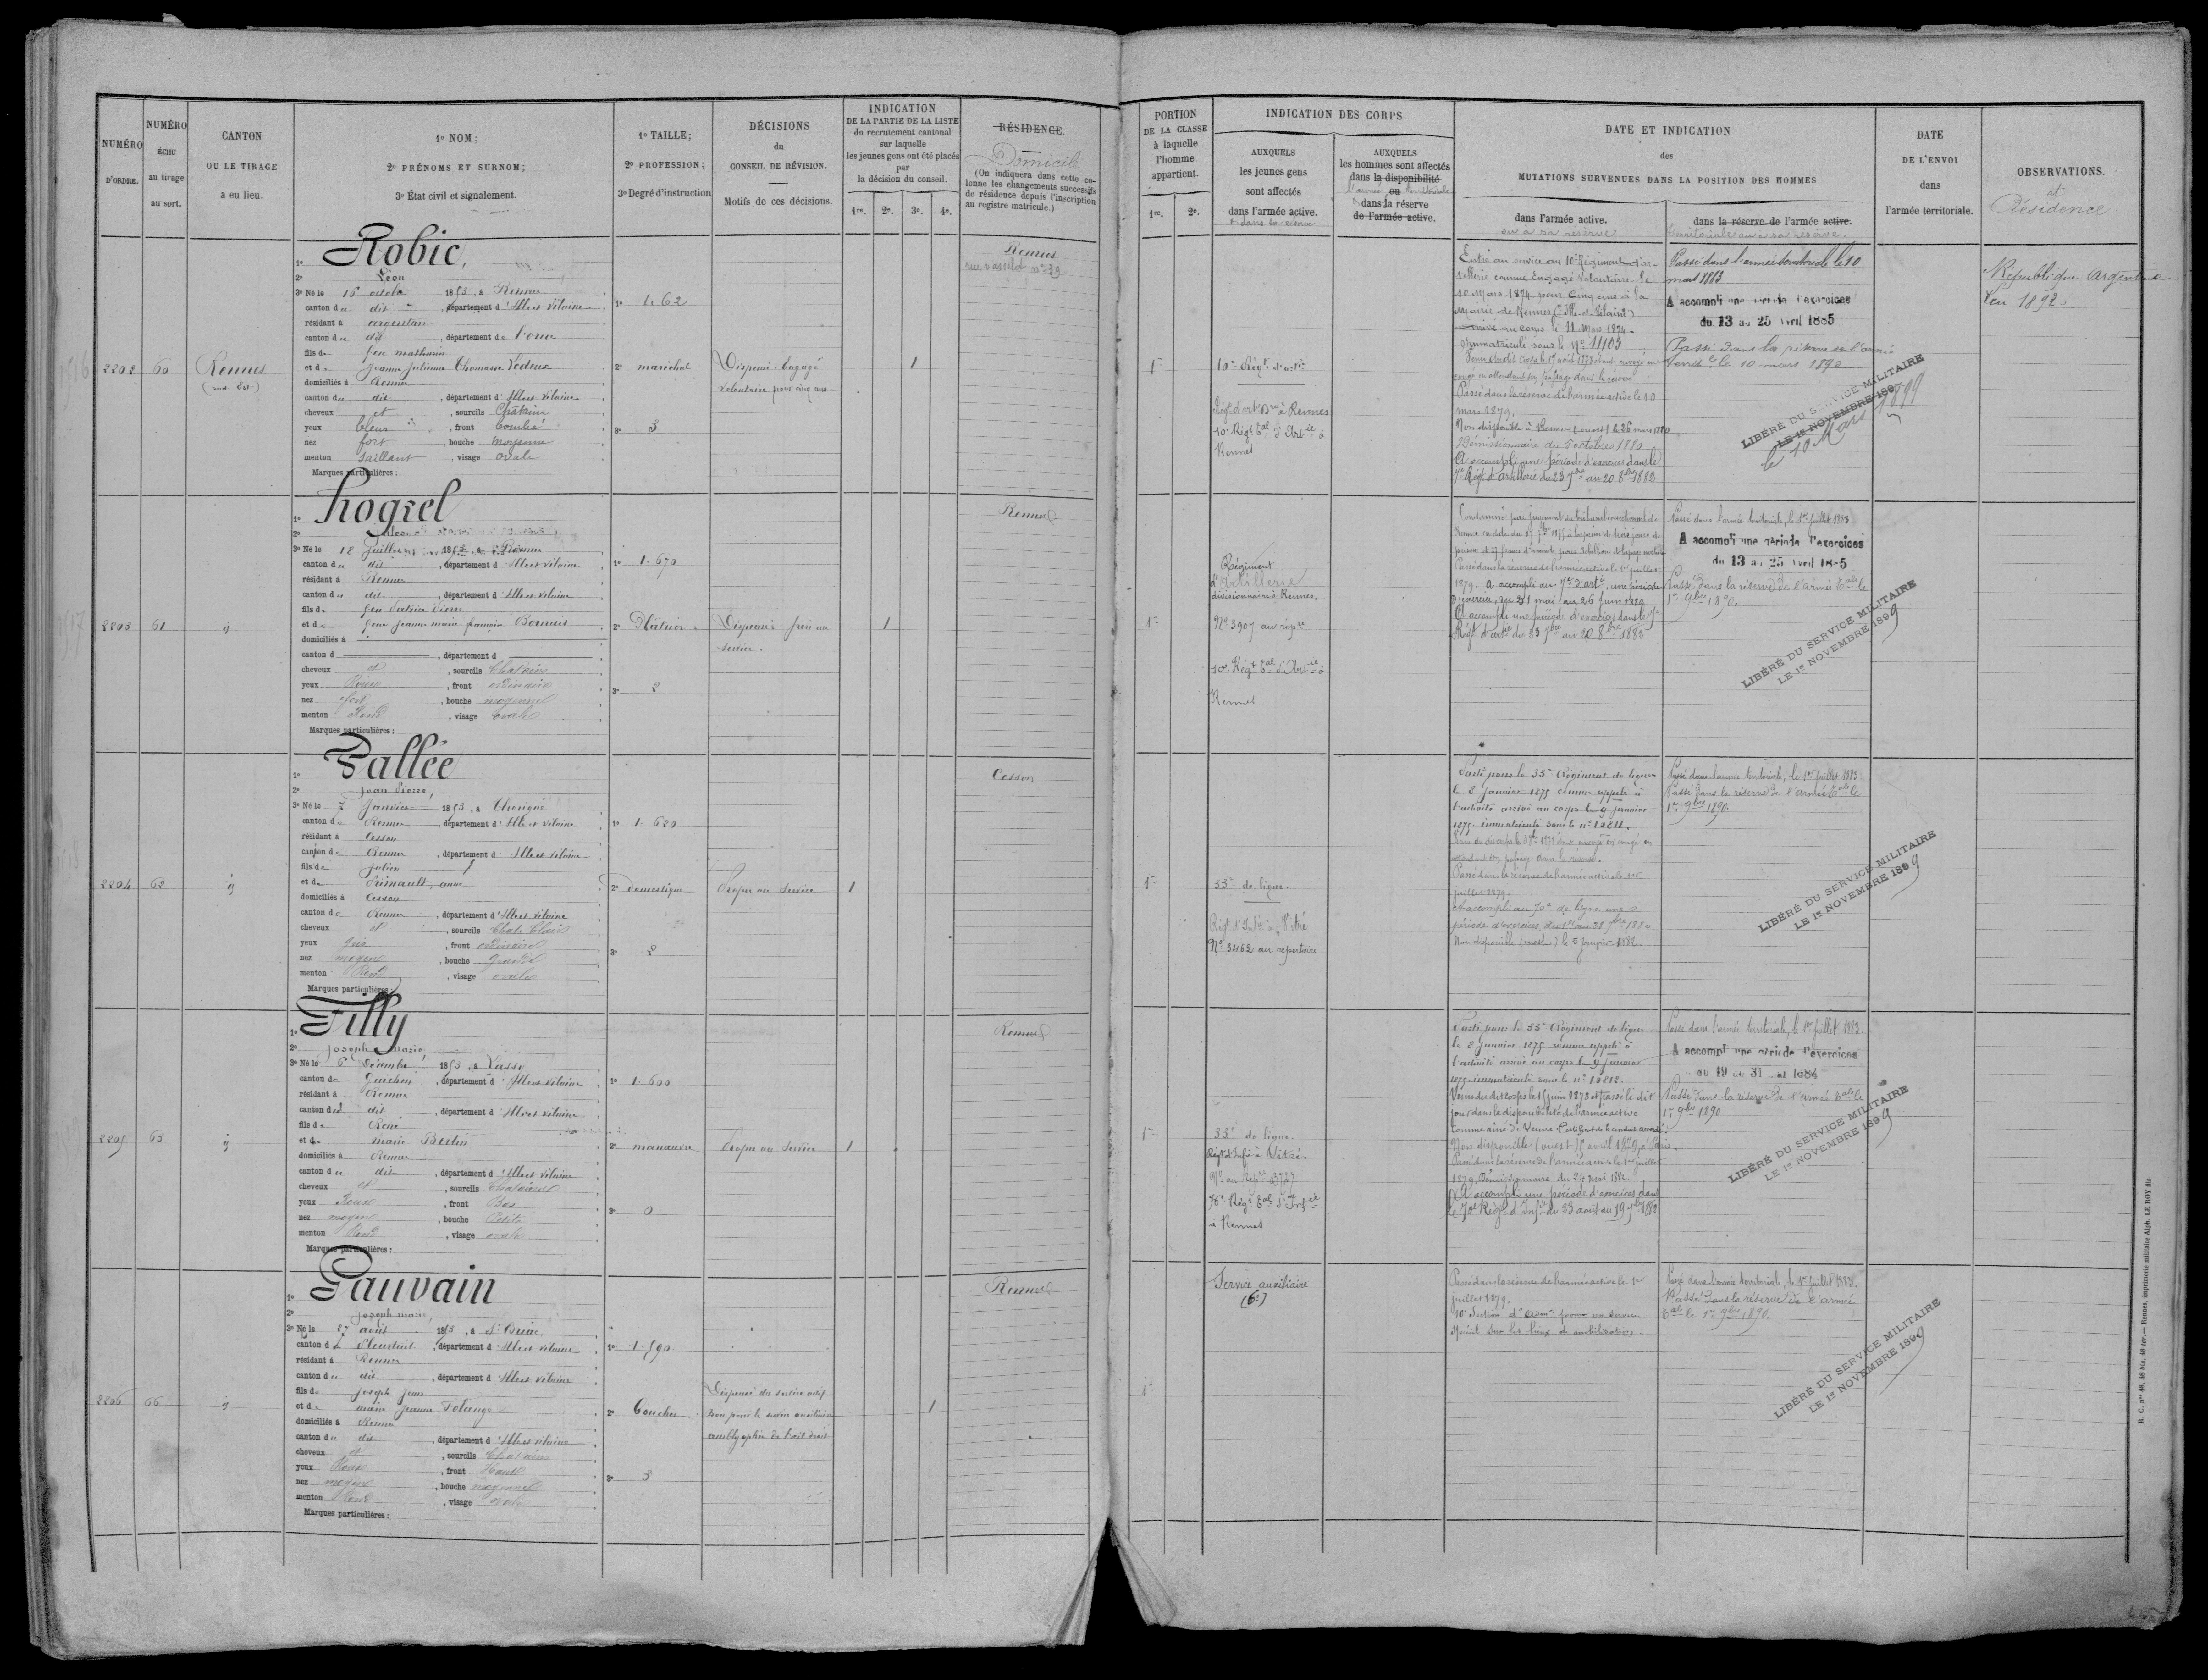 NUMÉRO D'ORDRE.
NUMÉRO ÉCHU au tirage au sort.
CANTON OU LE TIRAGE a eu lieu.
1º NOM;
2º PRÉNOMS ET SURNOM;
3º État civil et signalement.
1º TAILLE;
2º PROFESSION;
3º Degré d'instruction
DÉCISIONS du CONSEIL DE RÉVISION.
Motifs de ces décisions.
INDICATION DE LA PARTIE DE LA LISTE du recrutement cantonal sur laquelle les jeunes gens ont été placés par la décision du conseil.
1re. 2e. 3e. 4e.
RÉSIDENCE.
Domicile
(On indiquera dans cette colonne les changements successifs de résidence depuis l'inscription au registre matricule.)
PORTION DE LA CLASSE à laquelle l'homme appartient.
1re. 2e.
INDICATION DES CORPS
AUXQUELS les jeunes gens sont affectés dans l'armée active.
& dans la réserve
AUXQUELS les hommes sont affectés dans la disponibilité ou dans la réserve de l'armée active.
l'armée territoriale
DATE ET INDICATION des MUTATIONS SURVENUES DANS LA POSITION DES HOMMES
dans l'armée active.
ou à sa réserve
dans la réserve de l'armée active.
territoriale ou à sa réserve.
DATE DE L'ENVOI dans l'armée territoriale.
OBSERVATIONS.
et Résidence
2202
60
Rennes
(sud-Est)
1º Robic,
2º Léon
3º Né le 15 octobre 1853, à Rennes
canton du dit, département d'Ille et Vilaine
résidant à argentan
canton du dit, département de l'orne
fils de feu mathurin
et de Jeanne Julienne Thomasse Ledeux
domiciliés à Rennes
canton du dit, département d'Ille et Vilaine
cheveux et, sourcils Châtain
yeux bleus, front bombé
nez fort, bouche moyenne
menton saillant, visage ovale
Marques particulières :
1º 1.62
2º maréchal
3º 3
Dispensé. Engagé
volontaire pour cinq ans.
1
Rennes
1re
10e Régt d'artie
Régt d'artie à Rennes
10e Régt tal d'Artie à
Rennes
Entré au service au 10e Régiment d'ar-
tillerie comme Engagé Volontaire le
10 Mars 1874 pour cinq ans à la
Mairie de Rennes (Ille-et-Vilaine)
arrivé au corps le 11 Mars 1874.
immatriculé sous le Nº 11103
Passé dans la réserve de l'armée active le 10
mars 1879.
Non disponible à Rennes (ouest) le 26 mars 1880
Démissionnaire du 5 octobre 1880
A accompli une période d'exercices dans le
7e Régt d'artillerie du 23 7bre au 20 8bre 1882
Passé dans l'armée territoriale le 10
mars 1883
A accompli une période d'exercices
du 13 au 25 avril 1885
Passé dans la réserve de l'armée
territle le 10 mars 1890
LIBÉRÉ DU SERVICE MILITAIRE
LE 1er NOVEMBRE 189
le 10 Mars 1899
République Argentine
en 1892.
2203
61
id
1º Hogrel
2º Jules
3º Né le 18 Juillet 1853, à Rennes
canton du dit, département d'Ille et Vilaine
résidant à Rennes
canton du dit, département d'Ille et Vilaine
fils de feu Pierre
et de feue Jeanne marie françoise Bornais
domiciliés à
canton d, département d
cheveux et, sourcils Chatain
yeux Roux, front ordinaire
nez fort, bouche moyenne
menton Rond, visage ovale
Marques particulières :
1º 1.670
2º Plâtrier
3º 2
Dispensé frère au
service.
1
Rennes
1re
Régiment
d'artillerie
divisionnaire à Rennes.
Nº 3907 au répre
10e Régt tal d'Artie à
Rennes
Passé dans la réserve de l'armée active le 1er juillet
1879. A accompli au 7e d'artie une période
d'exercices, du 31 mai au 26 juin 1880
A accompli une période d'exercices dans le 7e
Régt d'artie du 23 7bre au 20 8bre 1882
Passé dans l'armée territoriale, le 1er juillet 1883.
A accompli une période d'exercices
du 13 au 25 avril 1885
Passé dans la réserve de l'armée tale le
1er 9bre 1890.
LIBÉRÉ DU SERVICE MILITAIRE
LE 1er NOVEMBRE 1899
2204
62
id
1º Vallée
2º Jean Pierre,
3º Né le 7 Janvier 1853, à Thorigné
canton de Rennes, département d'Ille et Vilaine
résidant à Cesson
canton de Rennes, département d'Ille et Vilaine
fils de Julien
et de anne
domiciliés à Cesson
canton de Rennes, département d'Ille et Vilaine
cheveux et, sourcils Chat. Clair
yeux gris, front ordinaire
nez moyen, bouche grande
menton Rond, visage ovale
Marques particulières :
1º 1.620
2º domestique
3º 2
Propre au Service
1
Cesson
1re
55e de ligne.
Régt d'Infie à Vitré
Nº 3462 au répertoire
Parti pour le 55e Régiment de ligne
le 8 Janvier 1875 comme appelé à
l'activité arrivé au corps le 9 janvier
1875. immatriculé sous le nº 10811.
Passé dans la réserve de l'armée active le 1er
juillet 1879.
A accompli au 70e de ligne une
période d'exercices, du 1er au 28 7bre 1880
Non disponible (ouest) le 2 janvier 1882.
Passé dans l'armée territoriale, le 1er juillet 1883.
Passé dans la réserve de l'armée tale le
1er 9bre 1890.
LIBÉRÉ DU SERVICE MILITAIRE
LE 1er NOVEMBRE 1899
2205
63
id
1º Filly
2º Joseph Marie,
3º Né le 6 Décembre 1853, à Lassy
canton de Guichen, département d'Ille et Vilaine
résidant à Rennes
canton du dit, département d'Ille et Vilaine
fils de René
et de marie Bertin
domiciliés à Rennes
canton du dit, département d'Ille et Vilaine
cheveux et, sourcils Chatains
yeux Roux, front Bas
nez moyen, bouche Petite
menton Rond, visage ovale
Marques particulières :
1º 1.600
2º manœuvre
3º 0
Propre au Service
1
Rennes
1re
55e de ligne.
Régt d'Infie à Vitré.
Nº au Répre 3727
76e Régt tal d'Infie
à Rennes
Parti pour le 55e Régiment de ligne
le 8 Janvier 1875 comme appelé à
l'activité arrivé au corps le 9 janvier
1875. immatriculé sous le nº 10812.
Passé dans la réserve de l'armée active le 1er juillet
1879. Démissionnaire du 24 mai 1882.
A accompli une période d'exercices dans
le 70e Régt d'Infie du 23 août au 19 7bre 1882
Passé dans l'armée territoriale, le 1er juillet 1883.
A accompli une période d'exercices
du 19 au 31 mai 1884
Passé dans la réserve de l'armée tale le
1er 9bre 1890
LIBÉRÉ DU SERVICE MILITAIRE
LE 1er NOVEMBRE 1899
2206
66
id
1º Gauvain
2º Joseph marie,
3º Né le 27 août 1853, à St Briac
canton de Pleurtuit, département d'Ille et Vilaine
résidant à Rennes
canton du dit, département d'Ille et Vilaine
fils de Joseph Jean
et de marie Jeanne
domiciliés à Rennes
canton du dit, département d'Ille et Vilaine
cheveux et, sourcils Chatains
yeux Roux, front Haut
nez moyen, bouche moyenne
menton Rond, visage ovale
Marques particulières :
1º 1.590
2º Boucher
3º 3
Dispensé du service actif
bon pour le service auxiliaire
amblyopie de l'œil droit
1
Rennes
1re
Service auxiliaire
(6e)
Passé dans la réserve de l'armée active le 1er
juillet 1879.
10e Section d'admon pour un service
spécial sur les lieux de mobilisation.
Passé dans l'armée territoriale, le 1er juillet 1883.
Passé dans la réserve de l'armée
tale le 1er 9bre 1890.
LIBÉRÉ DU SERVICE MILITAIRE
LE 1er NOVEMBRE 1899
R. C. nos 48, 48 bis, 48 ter. — Rennes, imprimerie militaire Alph. LE ROY fils